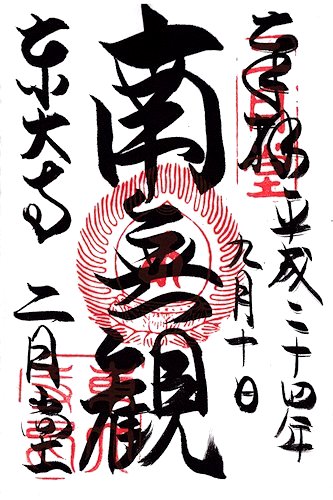 奉拝
平成二十四年
九月十日
南無観
東大寺 二月堂